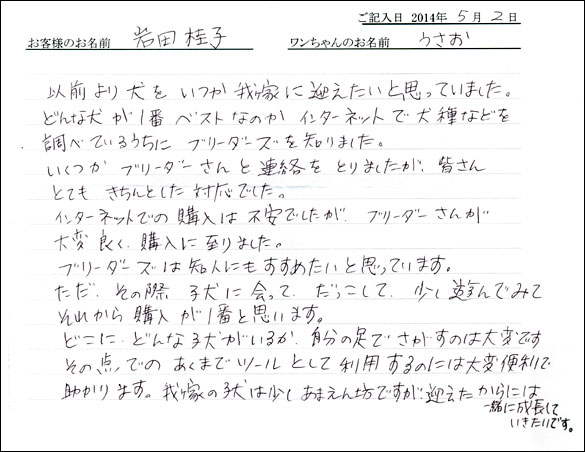 ご記入日 2014年 5月 2日
お客様のお名前 岩田桂子 ワンちゃんのお名前 うさお
以前より犬をいつか我が家に迎えたいと思っていました。
どんな犬が1番ベストなのかインターネットで犬種などを
調べているうちにブリーダーズを知りました。
いくつかブリーダーさんと連絡をとりましたが、皆さん
とてもきちんとした対応でした。
インターネットでの購入は不安でしたが、ブリーダーさんが
大変良く、購入に至りました。
ブリーダーズは知人にもすすめたいと思っています。
ただ、その際子犬に会って、だっこして、少し遊んでみて
それから購入が1番と思います。
どこに、どんな子犬がいるか、自分の足でさがすのは大変です
その点でのあくまでツールとして利用するのには大変便利で
助かります。我が家の子犬は少しあまえん坊ですが、迎えたからには
一緒に成長して
いきたいです。